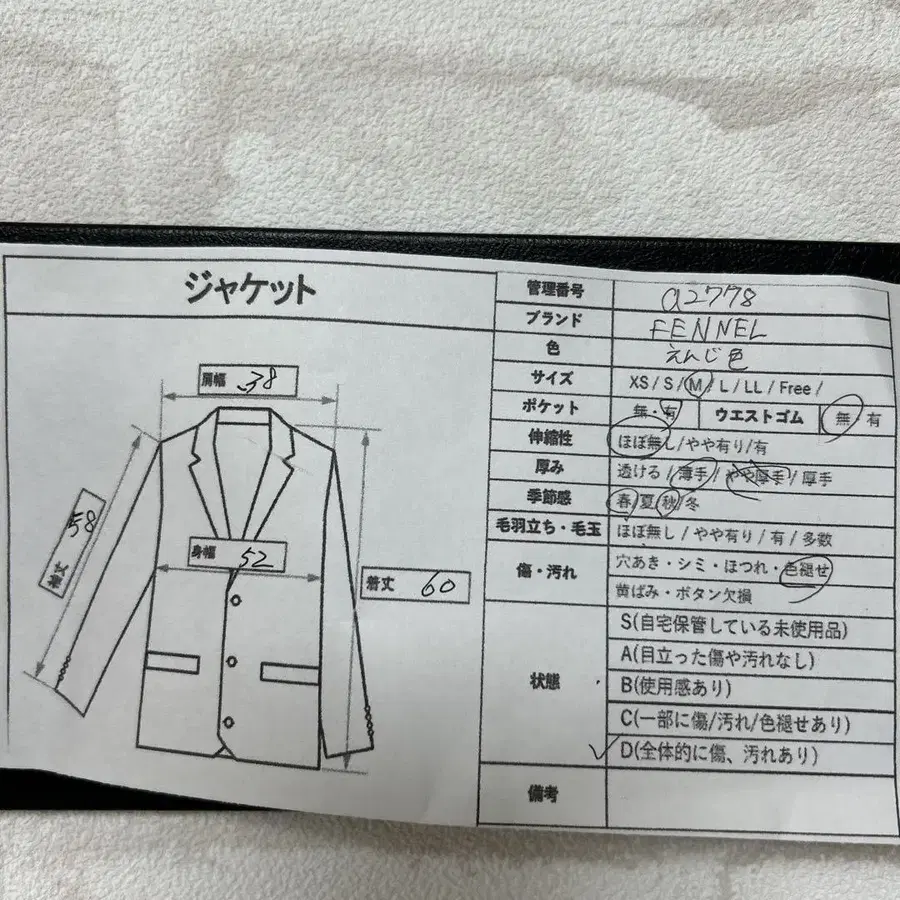 ジャケット
肩幅 38
袖丈 58
身幅 52
着丈 60
管理番号 a2778
ブランド FENNEL
色 えんじ色
サイズ XS / S / M / L / LL / Free /
ポケット 無・有 ウエストゴム 無・有
伸縮性 ほぼ無し/やや有り/有
厚み 透ける / 薄手 / やや厚手 / 厚手
季節感 春/夏/秋/冬
毛羽立ち・毛玉 ほぼ無し / やや有り / 有 / 多数
傷・汚れ 穴あき・シミ・ほつれ・色褪せ
黄ばみ・ボタン欠損
状態 S(自宅保管している未使用品)
A(目立った傷や汚れなし)
B(使用感あり)
C(一部に傷/汚れ/色褪せあり)
✓ D(全体的に傷、汚れあり)
備考